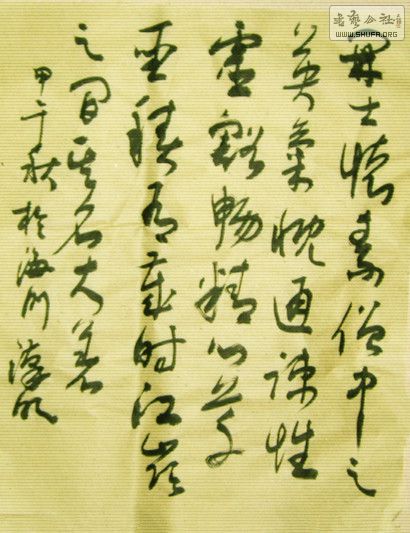 開士懷素僧中之
英氣概通疎性
靈豁暢精心草
聖積有歲時江嶺
之間其名大著
甲午秋於海
書藝公社
WWW.SHUFA.ORG